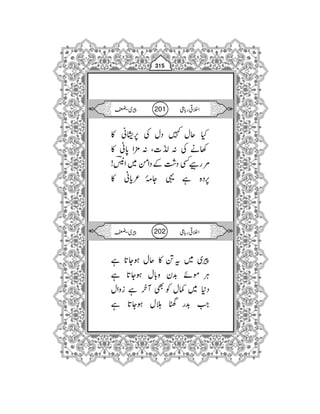 315
اخلاقی رباعی 201 پیری۔ضعف
کیا حال کہیں دل کی پریشانی کا
کھانے کی نہ لذّت، نہ مزا پانی کا
مر رہیے کسی دشت کے دامن میں انیسؔ!
پردہ ہے یہی جامۂ عریانی کا
اخلاقی رباعی 202 پیری۔ضعف
پیری میں یہ تن کا حال ہوجاتا ہے
ہر موئے بدن وبال ہوجاتا ہے
دنیا میں کمال کو بھی آخر ہے زوال
جب بدر گھٹا ہلال ہوجاتا ہے